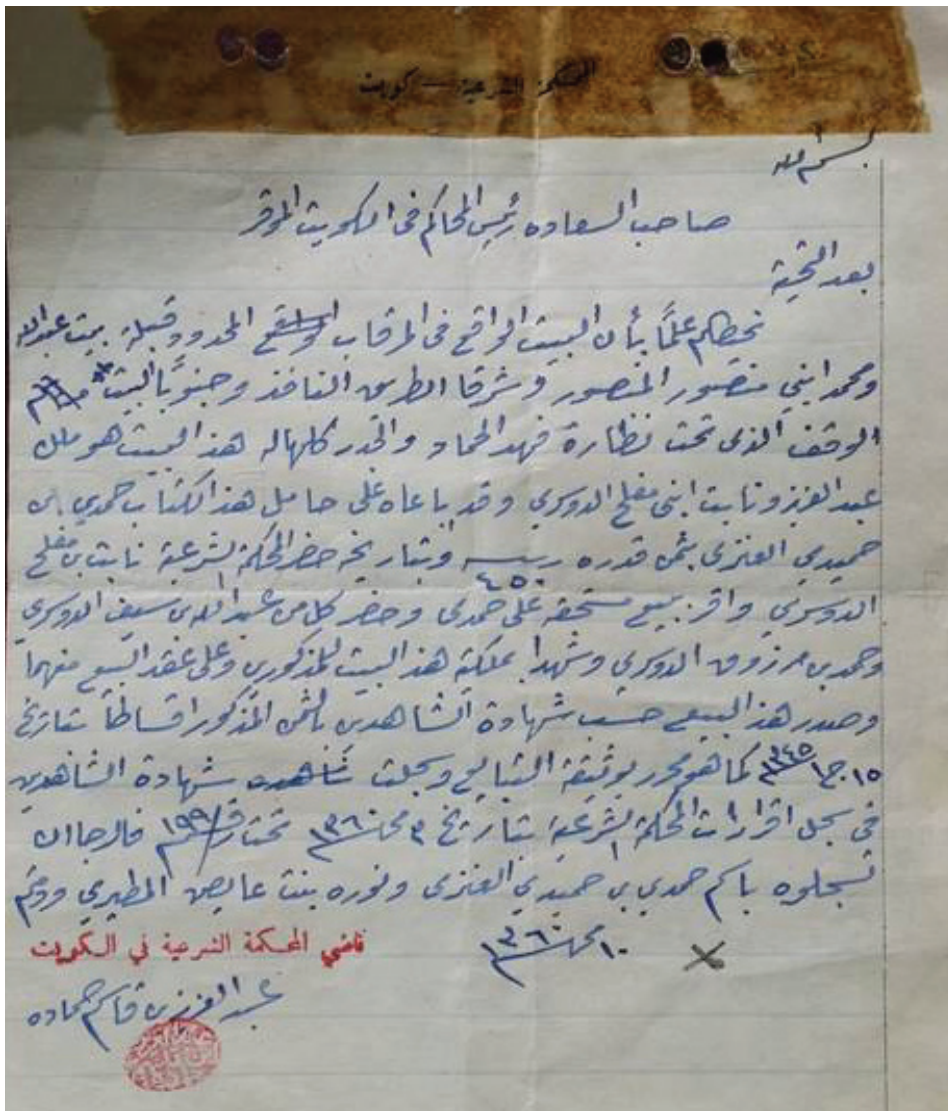 المحكمة الشرعية — كويت
بسم الله
صاحب السعاده رئيس المحاكم في الكويت الموقر
بعد التحية
نحيطكم علمًا بأن البيت الواقع في المرقاب المحدود قبلة بيت عبدالله
ومحمد ابني منصور المنصور وشرقا الطريق النافذ وجنوبًا البيت
الوقف الذي تحت نظارة فهد الحماد هذا البيت هو ملك
عبد العزيز ونابت ابني مفلح الدوسري وقد باعاه على حامل هذا الكتاب حمدي بن
حميدي العنزي بثمن قدره ربيه ٤٥٠ وبتاريخه حضر المحكمة الشرعية نابت بن مفلح
الدوسري واقر ببيع مستحقه على حمدي وحضر كل من عبدالله بن سيف الدوسري
وحمد بن مرزوق الدوسري وشهدا بملكية هذا البيت للمذكورين وعلى عقد البيع منهما
وصدر هذا البيع حسب شهادة الشاهدين بالثمن المذكور اقساطًا بتاريخ
١٥ ج١ ١٣٤٥ كما هو محرر بوثيقة التبايع وسجلت شهادة الشاهدين
في سجل اقرارات المحكمة الشرعية بتاريخ ٣ محرم ١٣٦٠ تحت رقم ١٥٩ فالرجا ان
تسجلوه باسم حمدي بن حميدي العنزي ونوره بنت عايض المطيري ودمتم
١٠ محرم ١٣٦٠
قاضي المحكمة الشرعية في الكويت
عبد العزيز قاسم حماده